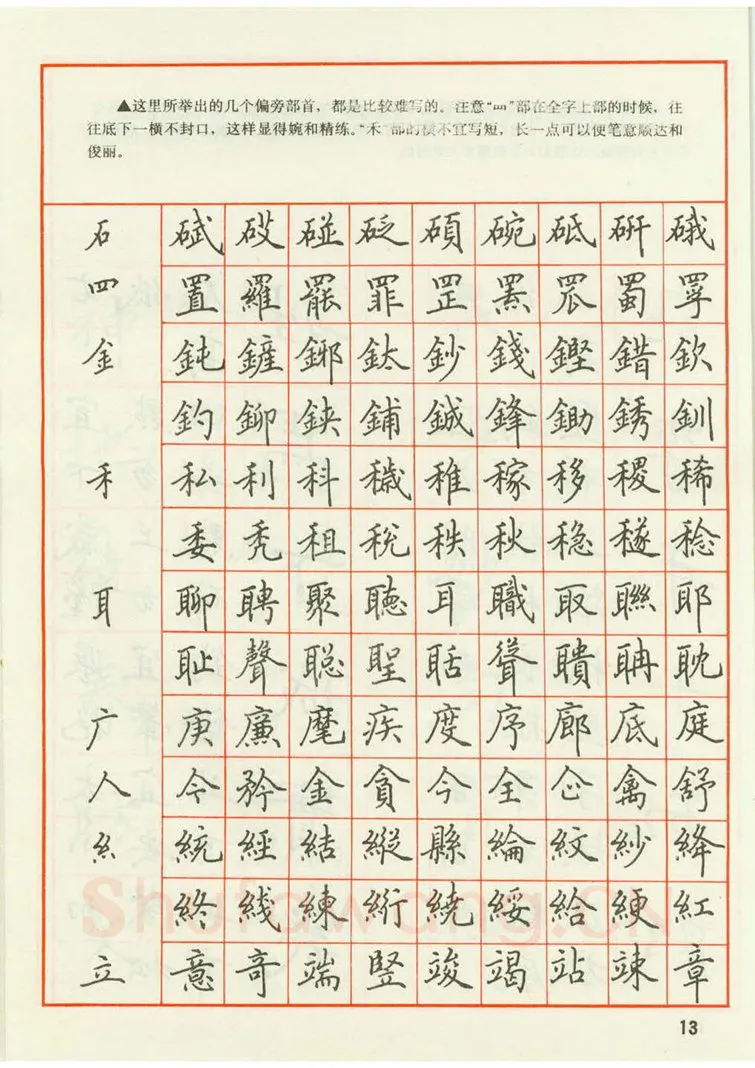 ▲这里所举出的几个偏旁部首，都是比较难写的。注意“罒”部在全字上部的时候，往
往底下一横不封口，这样显得婉和精练。“禾”部的横不宜写短，长一点可以使笔意顺达和
俊丽。
石 碔 砹 碰 砭 碩 碗 砥 硏 硪
四 置 羅 罷 罪 罡 罴 罛 蜀 罦
金 鈍 鏟 鎁 鈦 鈔 錢 鏗 錯 欽
釣 鉚 鋏 鋪 鋮 鋒 鋤 銹 釧
禾 私 利 科 穢 稚 稼 移 稷 稀
委 秃 租 税 秩 秋 稳 穟 稔
耳 聊 聘 聚 聴 耳 職 取 聯 耶
耻 聲 聪 聖 聒 聳 聵 聃 耽
广 庚 廉 麾 疾 度 序 廊 底 庭
人 令 矜 金 貪 今 全 企 禽 舒
糸 統 經 結 縱 縣 綸 紋 紗 絳
終 綫 練 絎 繞 綏 給 綆 紅
立 意 奇 端 竪 竣 竭 站 竦 章
Shufawang.CN
13